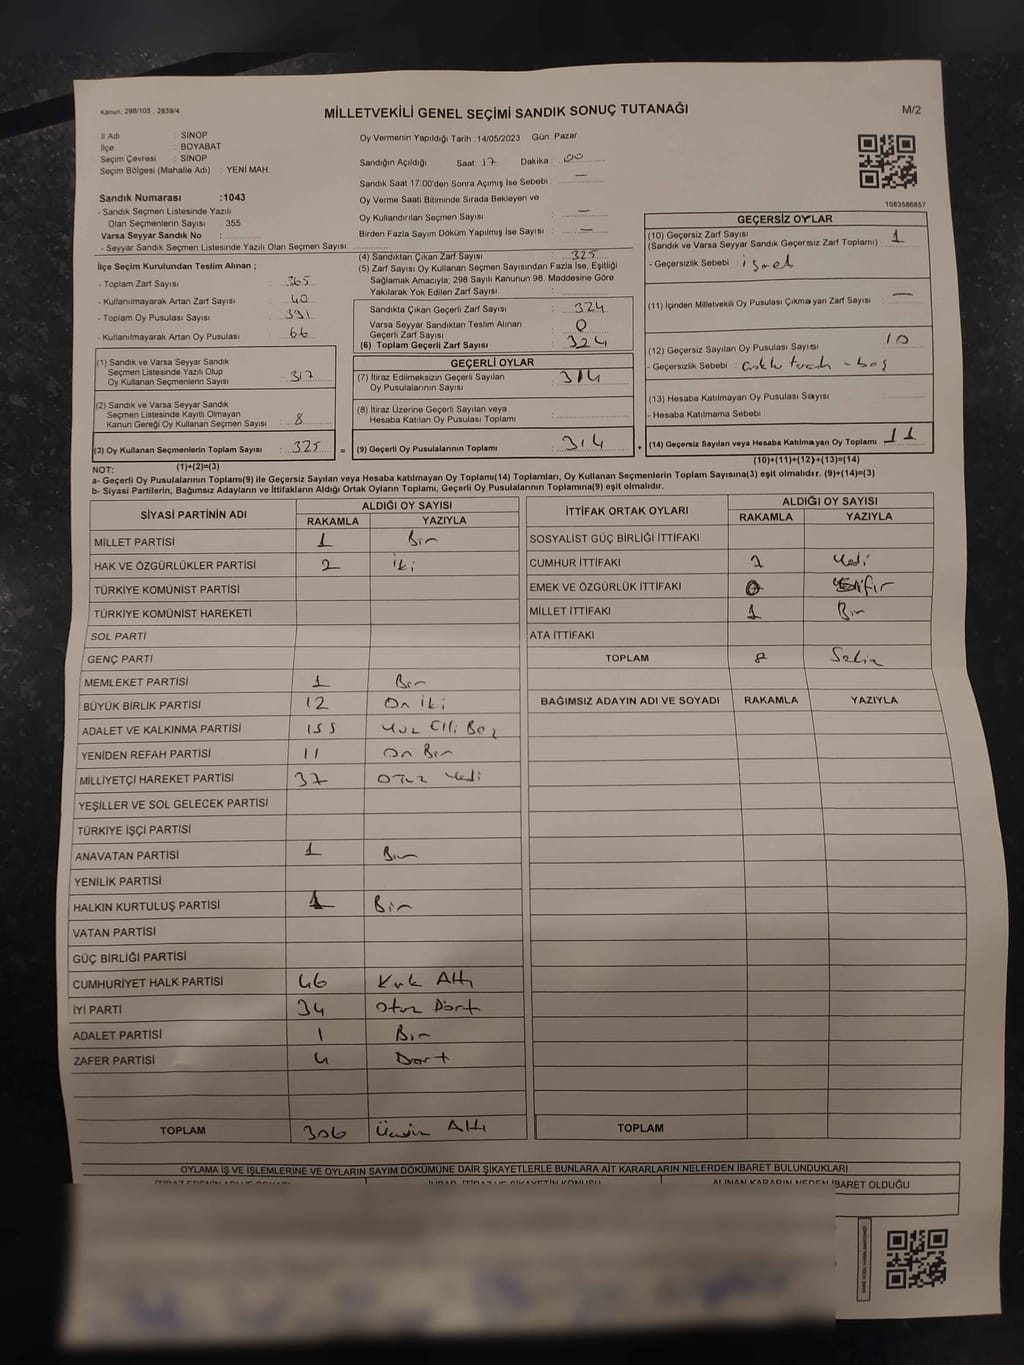 Kanun; 298/105 , 2839/4
MİLLETVEKİLİ GENEL SEÇİMİ SANDIK SONUÇ TUTANAĞI
M/2
İl Adı : SİNOP
İlçe : BOYABAT
Seçim Çevresi : SİNOP
Seçim Bölgesi (Mahalle Adı) : YENİ MAH.
Sandık Numarası :1043
- Sandık Seçmen Listesinde Yazılı
Olan Seçmenlerin Sayısı 355
Varsa Seyyar Sandık No :
- Seyyar Sandık Seçmen Listesinde Yazılı Olan Seçmen Sayısı.
Oy Vermenin Yapıldığı Tarih :14/05/2023 Gün: Pazar
Sandığın Açıldığı Saat: 17 Dakika : 00
Sandık Saat 17:00'den Sonra Açımış İse Sebebi : —
Oy Verme Saati Bitiminde Sırada Bekleyen ve
Oy Kullandırılan Seçmen Sayısı : —
Birden Fazla Sayım Döküm Yapılmış İse Sayısı : —
1083586857
İlçe Seçim Kurulundan Teslim Alınan ;
- Toplam Zarf Sayısı : 365
- Kullanılmayarak Artan Zarf Sayısı : 40
- Toplam Oy Pusulası Sayısı : 391
- Kullanılmayarak Artan Oy Pusulası : 66
(1) Sandık ve Varsa Seyyar Sandık
Seçmen Listesinde Yazılı Olup
Oy Kullanan Seçmenlerin Sayısı : 317
(2) Sandık ve Varsa Seyyar Sandık
Seçmen Listesinde Kayıtlı Olmayan
Kanun Gereği Oy Kullanan Seçmen Sayısı : 8
(3) Oy Kullanan Seçmenlerin Toplam Sayısı : 325 =
(1)+(2)=(3)
(4) Sandıktan Çıkan Zarf Sayısı : 325
(5) Zarf Sayısı Oy Kullanan Seçmen Sayısından Fazla İse, Eşitliği
Sağlamak Amacıyla; 298 Sayılı Kanunun 98. Maddesine Göre
Yakılarak Yok Edilen Zarf Sayısı :
Sandıkta Çıkan Geçerli Zarf Sayısı : 324
Varsa Seyyar Sandıktan Teslim Alınan
Geçerli Zarf Sayısı : 0
(6) Toplam Geçerli Zarf Sayısı : 324
GEÇERLİ OYLAR
(7) İtiraz Edilmeksizin Geçerli Sayılan
Oy Pusulalarının Sayısı : 314
(8) İtiraz Üzerine Geçerli Sayılan veya
Hesaba Katılan Oy Pusulası Toplamı :
(9) Geçerli Oy Pusulalarının Toplamı : 314 +
GEÇERSİZ OYLAR
(10) Geçersiz Zarf Sayısı
(Sandık ve Varsa Seyyar Sandık Geçersiz Zarf Toplamı) : 1
- Geçersizlik Sebebi :
(11) İçinden Milletvekili Oy Pusulası Çıkmayan Zarf Sayısı : —
(12) Geçersiz Sayılan Oy Pusulası Sayısı : 10
- Geçersizlik Sebebi : - boş
(13) Hesaba Katılmayan Oy Pusulası Sayısı :
- Hesaba Katılmama Sebebi :
(14) Geçersiz Sayılan veya Hesaba Katılmayan Oy Toplamı : 11
(10)+(11)+(12)+(13)=(14)
NOT:
a- Geçerli Oy Pusulalarının Toplamı(9) ile Geçersiz Sayılan veya Hesaba katılmayan Oy Toplamı(14) Toplamları, Oy Kullanan Seçmenlerin Toplam Sayısına(3) eşit olmalıdır. (9)+(14)=(3)
b- Siyasi Partilerin, Bağımsız Adayların ve İttifakların Aldığı Ortak Oyların Toplamı, Geçerli Oy Pusulalarının Toplamına(9) eşit olmalıdır.
SİYASİ PARTİNİN ADI ALDIĞI OY SAYISI
RAKAMLA YAZIYLA
MİLLET PARTİSİ 1 Bir
HAK VE ÖZGÜRLÜKLER PARTİSİ 2 iki
TÜRKİYE KOMÜNİST PARTİSİ
TÜRKİYE KOMÜNİST HAREKETİ
SOL PARTİ
GENÇ PARTİ
MEMLEKET PARTİSİ 1 Bir
BÜYÜK BİRLİK PARTİSİ 12 On iki
ADALET VE KALKINMA PARTİSİ 155 Yüz Elli Beş
YENİDEN REFAH PARTİSİ 11 On Bir
MİLLİYETÇİ HAREKET PARTİSİ 37 Otuz Yedi
YEŞİLLER VE SOL GELECEK PARTİSİ
TÜRKİYE İŞÇİ PARTİSİ
ANAVATAN PARTİSİ 1 Bir
YENİLİK PARTİSİ
HALKIN KURTULUŞ PARTİSİ 1 Bir
VATAN PARTİSİ
GÜÇ BİRLİĞİ PARTİSİ
CUMHURİYET HALK PARTİSİ 46 Kırk Altı
İYİ PARTİ 34 Otuz Dört
ADALET PARTİSİ 1 Bir
ZAFER PARTİSİ 4 Dört
TOPLAM 306 Üçyüz Altı
İTTİFAK ORTAK OYLARI ALDIĞI OY SAYISI
RAKAMLA YAZIYLA
SOSYALİST GÜÇ BİRLİĞİ İTTİFAKI
CUMHUR İTTİFAKI 7 Yedi
EMEK VE ÖZGÜRLÜK İTTİFAKI 0 Sıfır
MİLLET İTTİFAKI 1 Bir
ATA İTTİFAKI
TOPLAM 8 Sekiz
BAĞIMSIZ ADAYIN ADI VE SOYADI RAKAMLA YAZIYLA
TOPLAM
OYLAMA İŞ VE İŞLEMLERİNE VE OYLARIN SAYIM DÖKÜMÜNE DAİR ŞİKAYETLERLE BUNLARA AİT KARARLARIN NELERDEN İBARET BULUNDUKLARI
ALINAN KARARIN NEDEN İBARET OLDUĞU